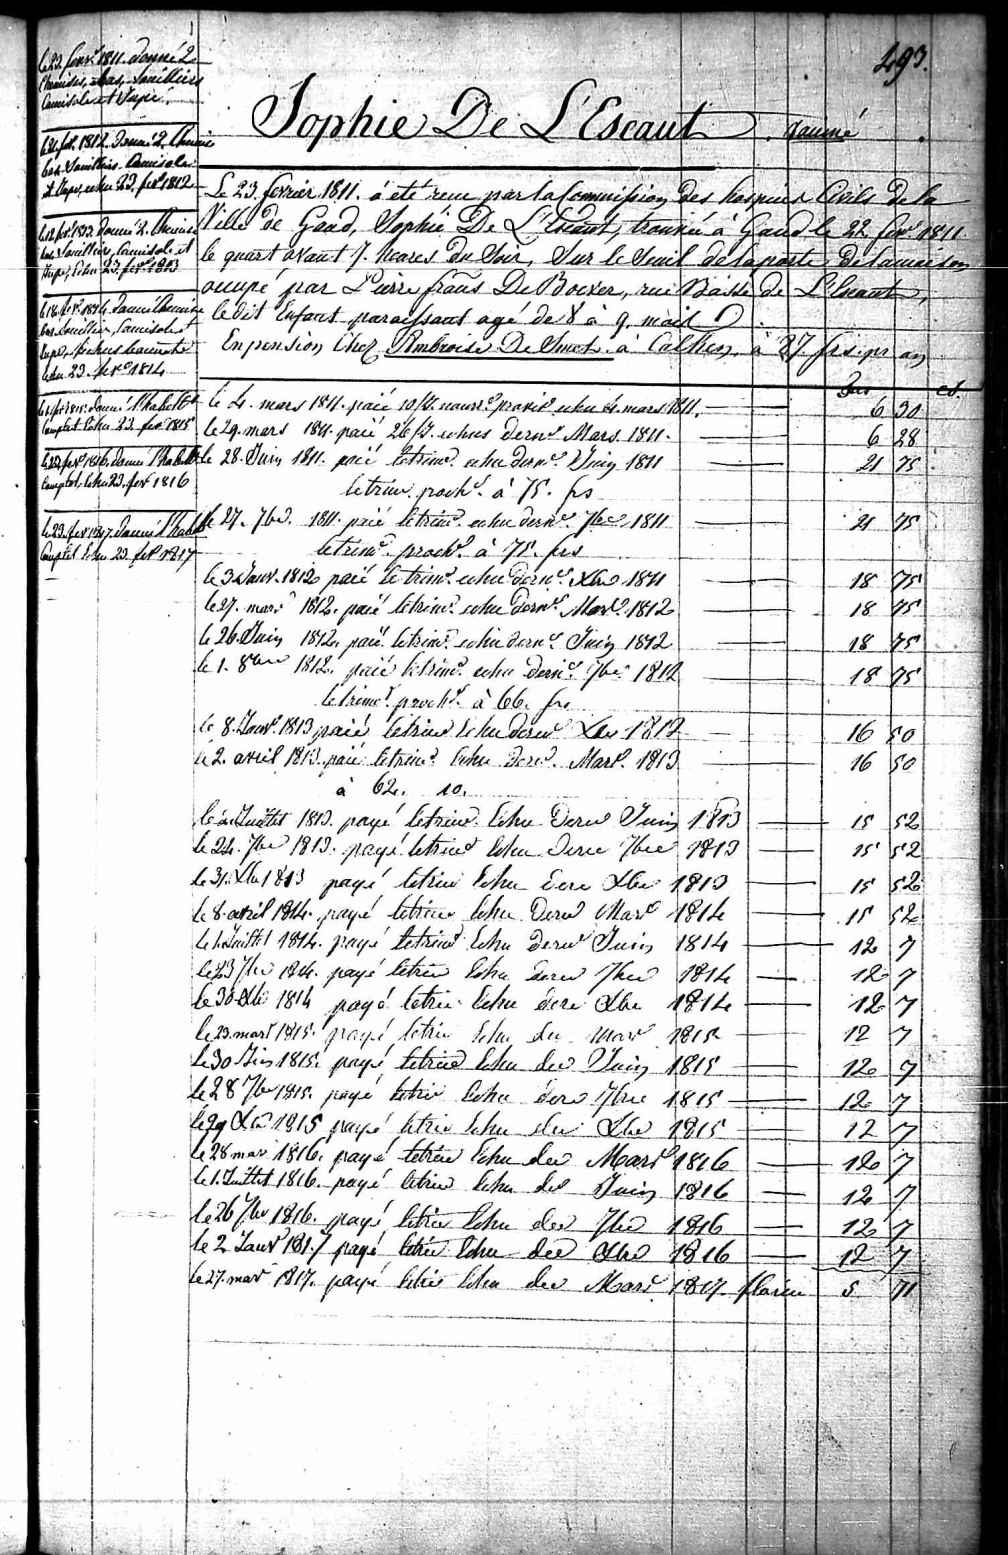 493.
Sophie De L'Escaut
le 22 fevr. 1811. donné 2
Chemises, bas, Souilliers
Camisole et Jupe.
le 21 fevr. 1812. Donné 2 Chemise
bas Souilliers. Camisole
et Jupe, echu 23. fevr 1812
fevr 1813. donné 2. Chemise
bas Souilliers, Camisole et
Jupe, Echu 23. fevr 1813
le 18. fevr. 1814. donné Chemise
bas Souilliers, Camisole et
Jupe,
echu 23. fevr 1814
fevr 1815. donné l'habillt
Complet Echu 23. fevr 1815
le 22 fevr. 1816. donné l'habillt
Complet, Echu 23. fevr 1816
le 23. fevr 1817. donné l'habillt
Complet Echu 23 fevr 1817
Le 23. fevrier 1811. a été recu par la Commission des hospices Civils de la
Ville de Gand, Sophie De L'Escaut, trouvée à Gand le 22 fevr 1811.
le quart avant 7. heures du Soir, Sur le Seuil de la porte de la maison
occupé par Pierre frans De Bocxer, rue Basse de L'Escaut,
le dit Enfant paraissant agé de 8 à 9. mois
En pension Chez Ambroise De Smet à Calken, à 87. frs pr an
le 4. mars 1811. paié echu 4. mars 1811. 6 30
le 29. mars 1811. paié 26 echus dernr Mars. 1811. 6 28
le 28. Juin 1811. paié le trimr. echu dernr. Juin 1811 21 75
le trimr. prochr. à 75. frs
le 27. 7bre. 1811. paié le trimr. echu dernr. 7bre. 1811 21 75
le trimr. prochr. à 75. frs
le 3 Janv. 1812 paié le trimr. echu dernr. Xbre 1811 18 75
le 27. mars 1812. paié le trimr. echu dernr. Mars. 1812 18 75
le 26. Juin 1812. paié le trimr. echu dernr. Juin 1812 18 75
le 1. 8bre 1812. paié le trimr. echu dernr. 7bre 1812 18 75
le trimr. prochr. à 66. frs
le 8. Janvr. 1813 paié le trimr Echu dernr Xbre 1812 16 50
le 2. avril 1813. paié le trimr. Echu dernr. Mars. 1813 16 50
à 62. 10.
le Juillet 1813. payé le trimr. Echu Dernr Juin 1813 15 52
le 24. 7bre 1813. payé le trimr Echu Dernr 7bre 1813 15 52
le 31. Xbre 1813 payé le trimr Echu dernr Xbre 1813 15 52
le 8. avril 1814. payé le trimr Echu Dernr Mars 1814 15 52
le 1. Juillet 1814. payé le trimr Echu dernr Juin 1814 12 7
le 23 7bre 1814. payé le trimr Echu dernr 7bre 1814 12 7
le 30 Xbre 1814 payé le trimr Echu dernr Xbre 1814 12 7
le 23. mars 1815. payé le trimr Echu der mars 1815 12 7
le 30 Juin 1815. payé le trimr Echu der Juin 1815 12 7
le 28 7bre 1815. payé le trimr Echu dernr 7bre 1815 12 7
le 29 Xbre 1815 payé le trimr Echu der Xbre 1815 12 7
le 28 mars 1816. payé le trimr Echu der Mars 1816 12 7
le 1. Juillet 1816. payé le trimr Echu der Juin 1816 12 7
le 26 7bre 1816. payé le trimr Echu der 7bre 1816 12 7
le 2 Janvr 1817 payé le trimr Echu der Xbre 1816 12 7
le 27. mars 1817. payé le trimr Echu der Mars. 1817. florin 5 71